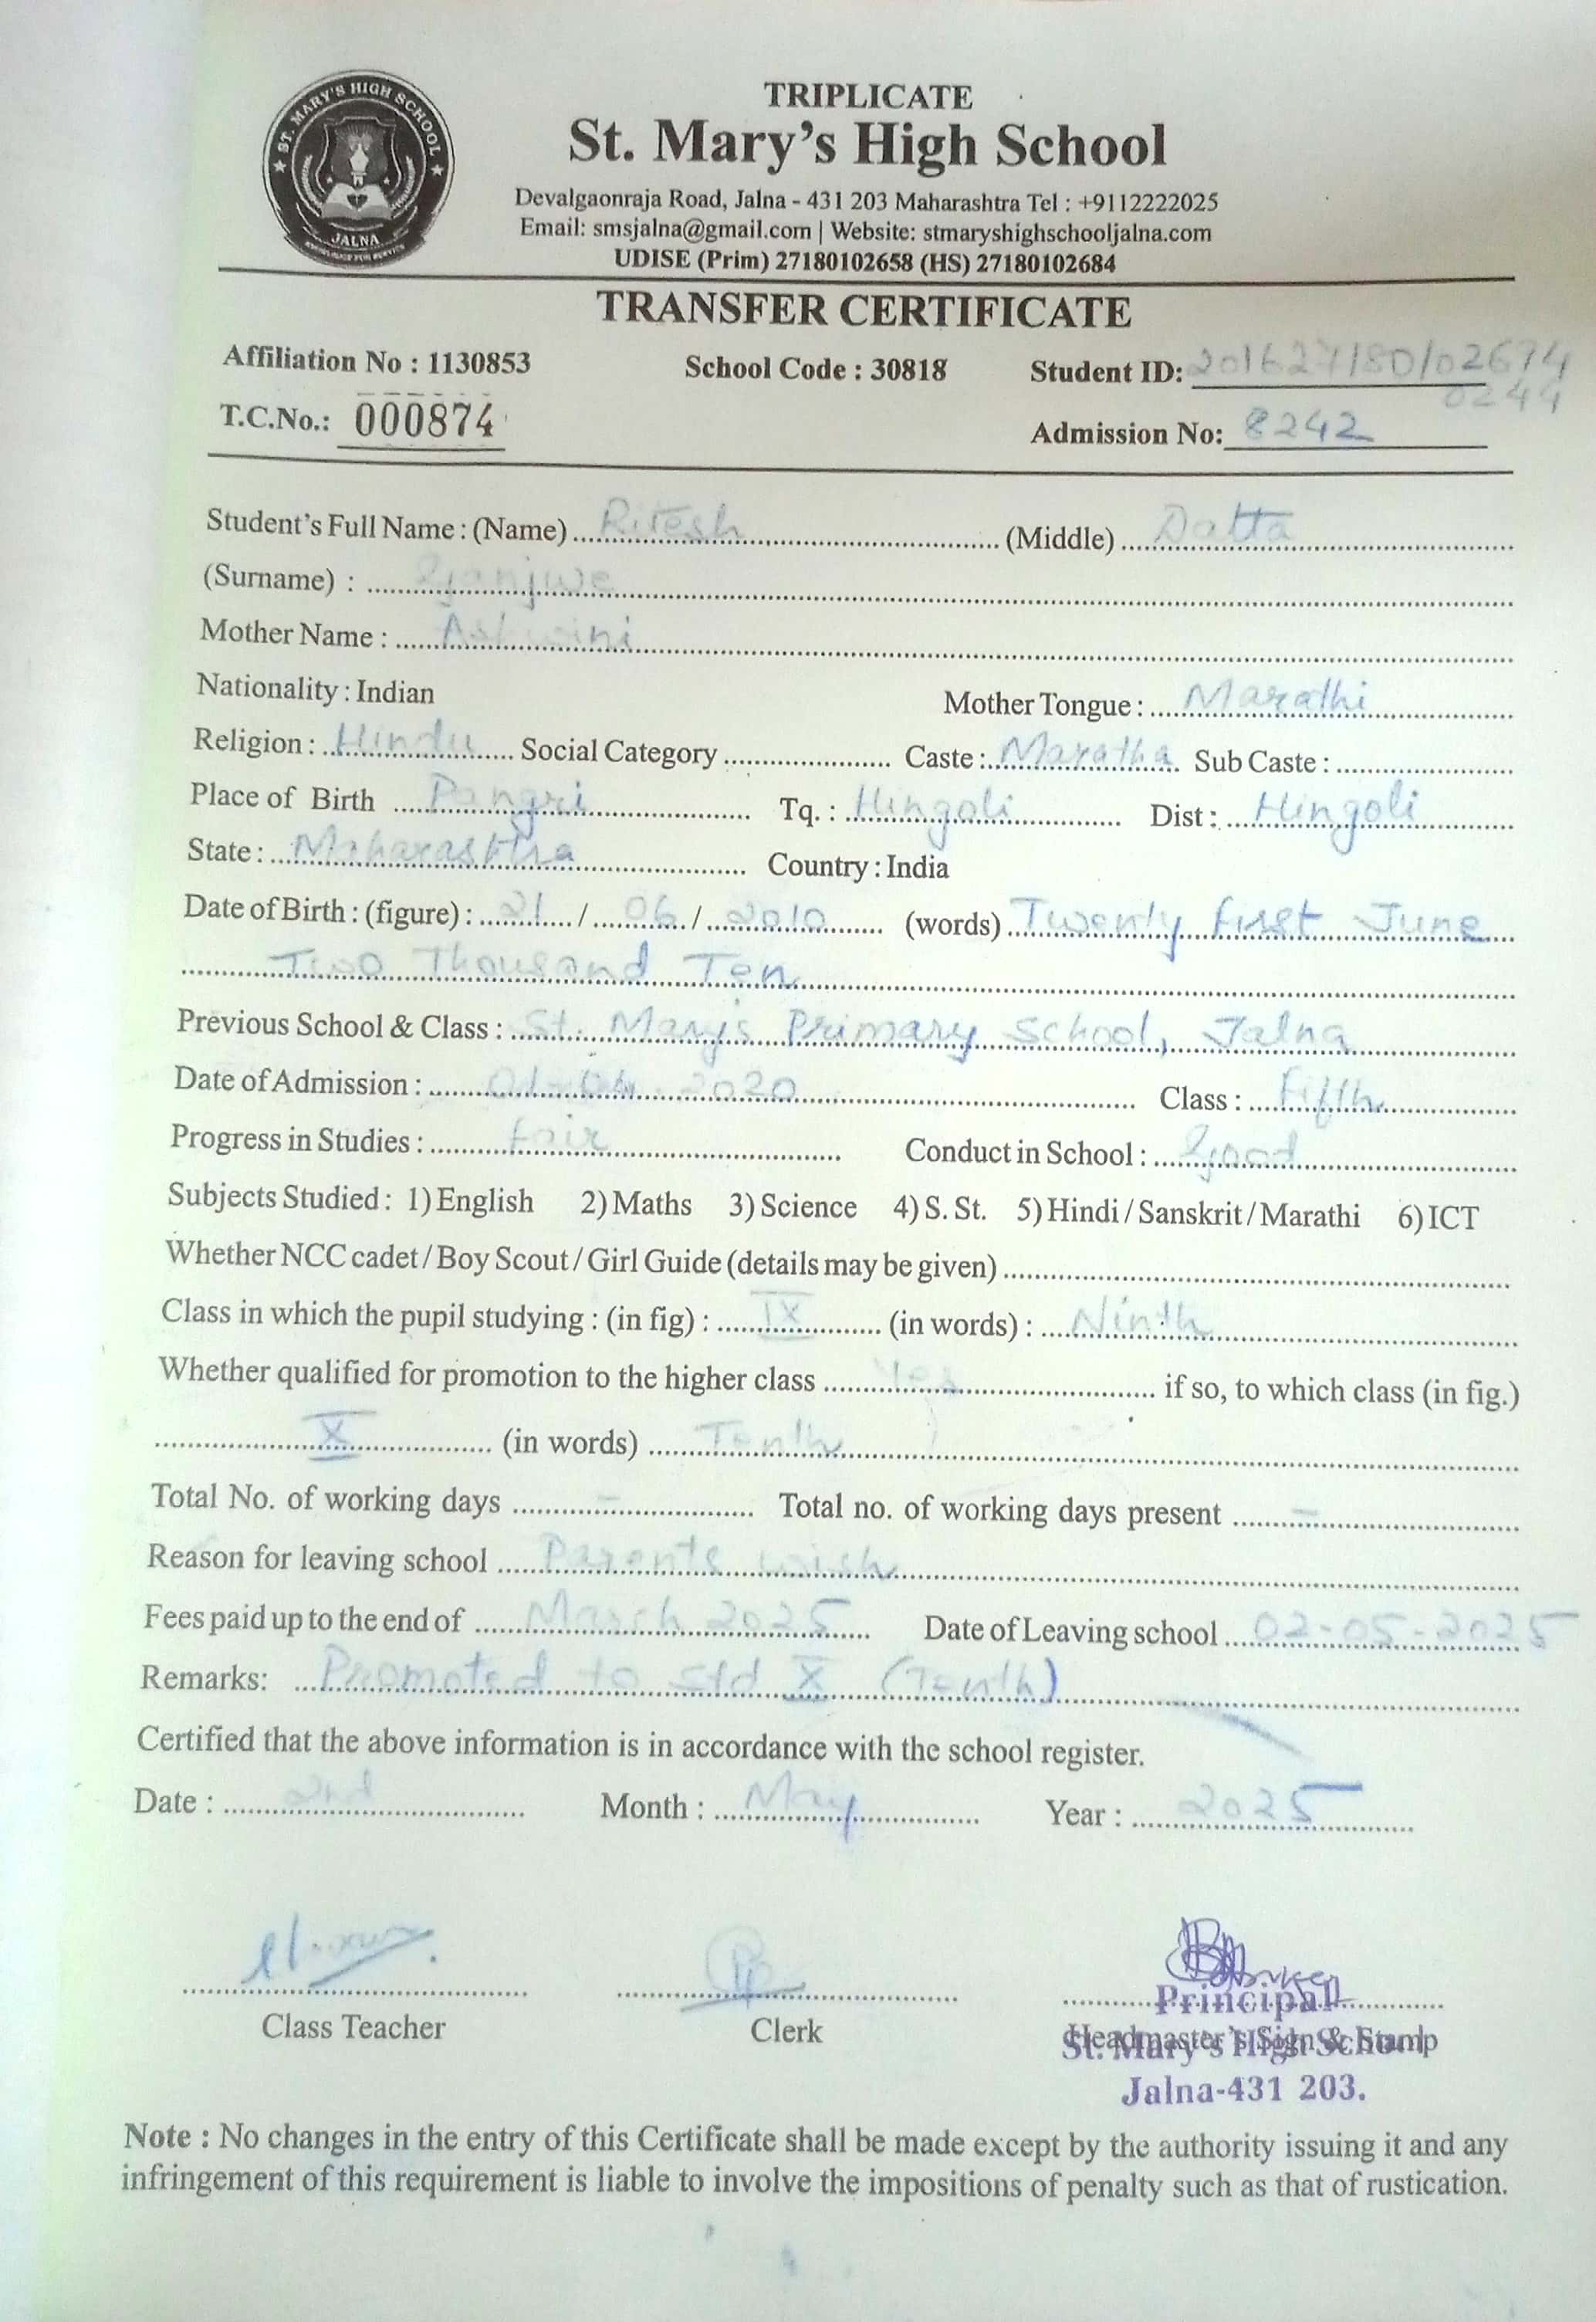 ST. MARY'S HIGH SCHOOL
JALNA
TRIPLICATE
St. Mary's High School
Devalgaonraja Road, Jalna - 431 203 Maharashtra Tel : +9112222025
Email: smsjalna@gmail.com | Website: stmaryshighschooljalna.com
UDISE (Prim) 27180102658 (HS) 27180102684
TRANSFER CERTIFICATE
Affiliation No : 1130853 School Code : 30818 Student ID: 201627180102674
0244
T.C.No.: 000874 Admission No: 8242
Student's Full Name : (Name) Ritesh (Middle) Datta
(Surname) :
Mother Name : Ashwini
Nationality : Indian Mother Tongue : Marathi
Religion : Hindu Social Category Caste : Maratha Sub Caste :
Place of Birth Pangri Tq. : Hingoli Dist : Hingoli
State : Maharashtra Country : India
Date of Birth : (figure) : 21 / 06 / 2010 (words) Twenty first June
Two Thousand Ten
Previous School & Class : St. Mary's Primary School, Jalna
Date of Admission : 01-04-2020 Class : Fifth
Progress in Studies : Fair Conduct in School : Good
Subjects Studied : 1) English 2) Maths 3) Science 4) S. St. 5) Hindi / Sanskrit / Marathi 6) ICT
Whether NCC cadet / Boy Scout / Girl Guide (details may be given)
Class in which the pupil studying : (in fig) : IX (in words) : Ninth
Whether qualified for promotion to the higher class Yes if so, to which class (in fig.)
X (in words) Tenth
Total No. of working days - Total no. of working days present -
Reason for leaving school Parents wish
Fees paid up to the end of March 2025 Date of Leaving school 02-05-2025
Remarks: Promoted to Std X (Tenth)
Certified that the above information is in accordance with the school register.
Date : 2nd Month : May Year : 2025
Class Teacher Clerk Principal
Headmaster's Sign & Stamp
St. Mary's High School
Jalna-431 203.
Note : No changes in the entry of this Certificate shall be made except by the authority issuing it and any
infringement of this requirement is liable to involve the impositions of penalty such as that of rustication.